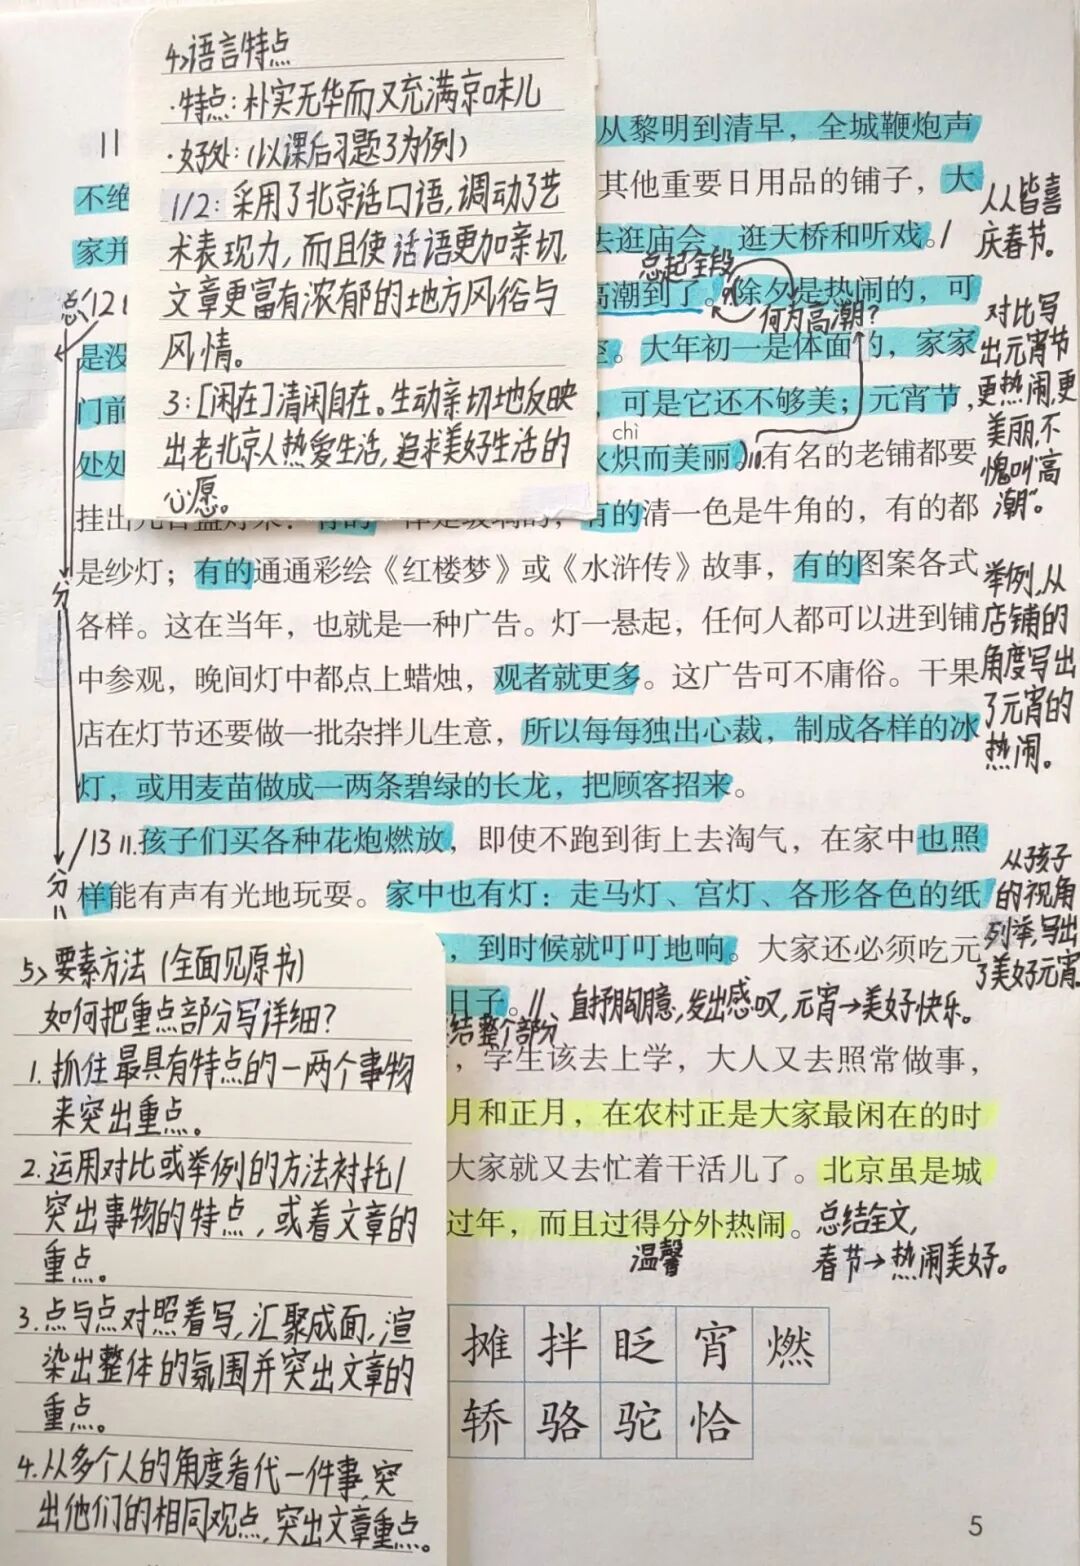 4>语言特点
·特点：朴实无华而又充满京味儿
·好处：（以课后习题3为例）
1/2：采用了北京话口语，调动了艺
术表现力，而且使话语更加亲切，
文章更富有浓郁的地方风俗与
风情。
3：[闲在]清闲自在。生动亲切地反映
出老北京人热爱生活，追求美好生活的
心愿。
11
从黎明到清早，全城鞭炮声
不绝
其他重要日用品的铺子，大
家并
去逛庙会，逛天桥和听戏。
人人皆喜
庆春节。
总起全段
总
12
高潮到了。除夕是热闹的，可
何为高潮？
是没
。大年初一是体面的，家家
门前
，可是它还不够美；元宵节，
chì
处处
火炽而美丽。有名的老铺都要
对比写
出元宵节
更热闹，更
美丽，不
愧叫“高
潮”。
挂出几百盏灯来：有的一律是玻璃的，有的清一色是牛角的，有的都
是纱灯；有的通通彩绘《红楼梦》或《水浒传》故事，有的图案各式
分
各样。这在当年，也就是一种广告。灯一悬起，任何人都可以进到铺
中参观，晚间灯中都点上蜡烛，观者就更多。这广告可不庸俗。干果
店在灯节还要做一批杂拌儿生意，所以每每独出心裁，制成各样的冰
灯，或用麦苗做成一两条碧绿的长龙，把顾客招来。
举例，从
店铺的
角度写出
了元宵的
热闹。
13
孩子们买各种花炮燃放，即使不跑到街上去淘气，在家中也照
分
样能有声有光地玩耍。家中也有灯：走马灯、宫灯、各形各色的纸
，到时候就叮叮地响。大家还必须吃元
从孩子
的视角
列举，写出
了美好元宵
日子。
直抒胸臆，发出感叹，元宵→美好快乐。
结整个部分
，学生该去上学，大人又去照常做事，
月和正月，在农村正是大家最闲在的时
大家就又去忙着干活儿了。北京虽是城
过年，而且过得分外热闹。
温馨
总结全文，
春节→热闹美好。
5>要素方法（全面见原书）
如何把重点部分写详细？
1.抓住最具有特点的一两个事物
来突出重点。
2.运用对比或举例的方法衬托/
突出事物的特点，或着文章的
重点。
3.点与点对照着写，汇聚成面，渲
染出整体的氛围并突出文章的
重点。
4.从多个人的角度看代一件事，突
出他们的相同观点，突出文章重点。
摊拌眨宵燃
轿骆驼恰
5